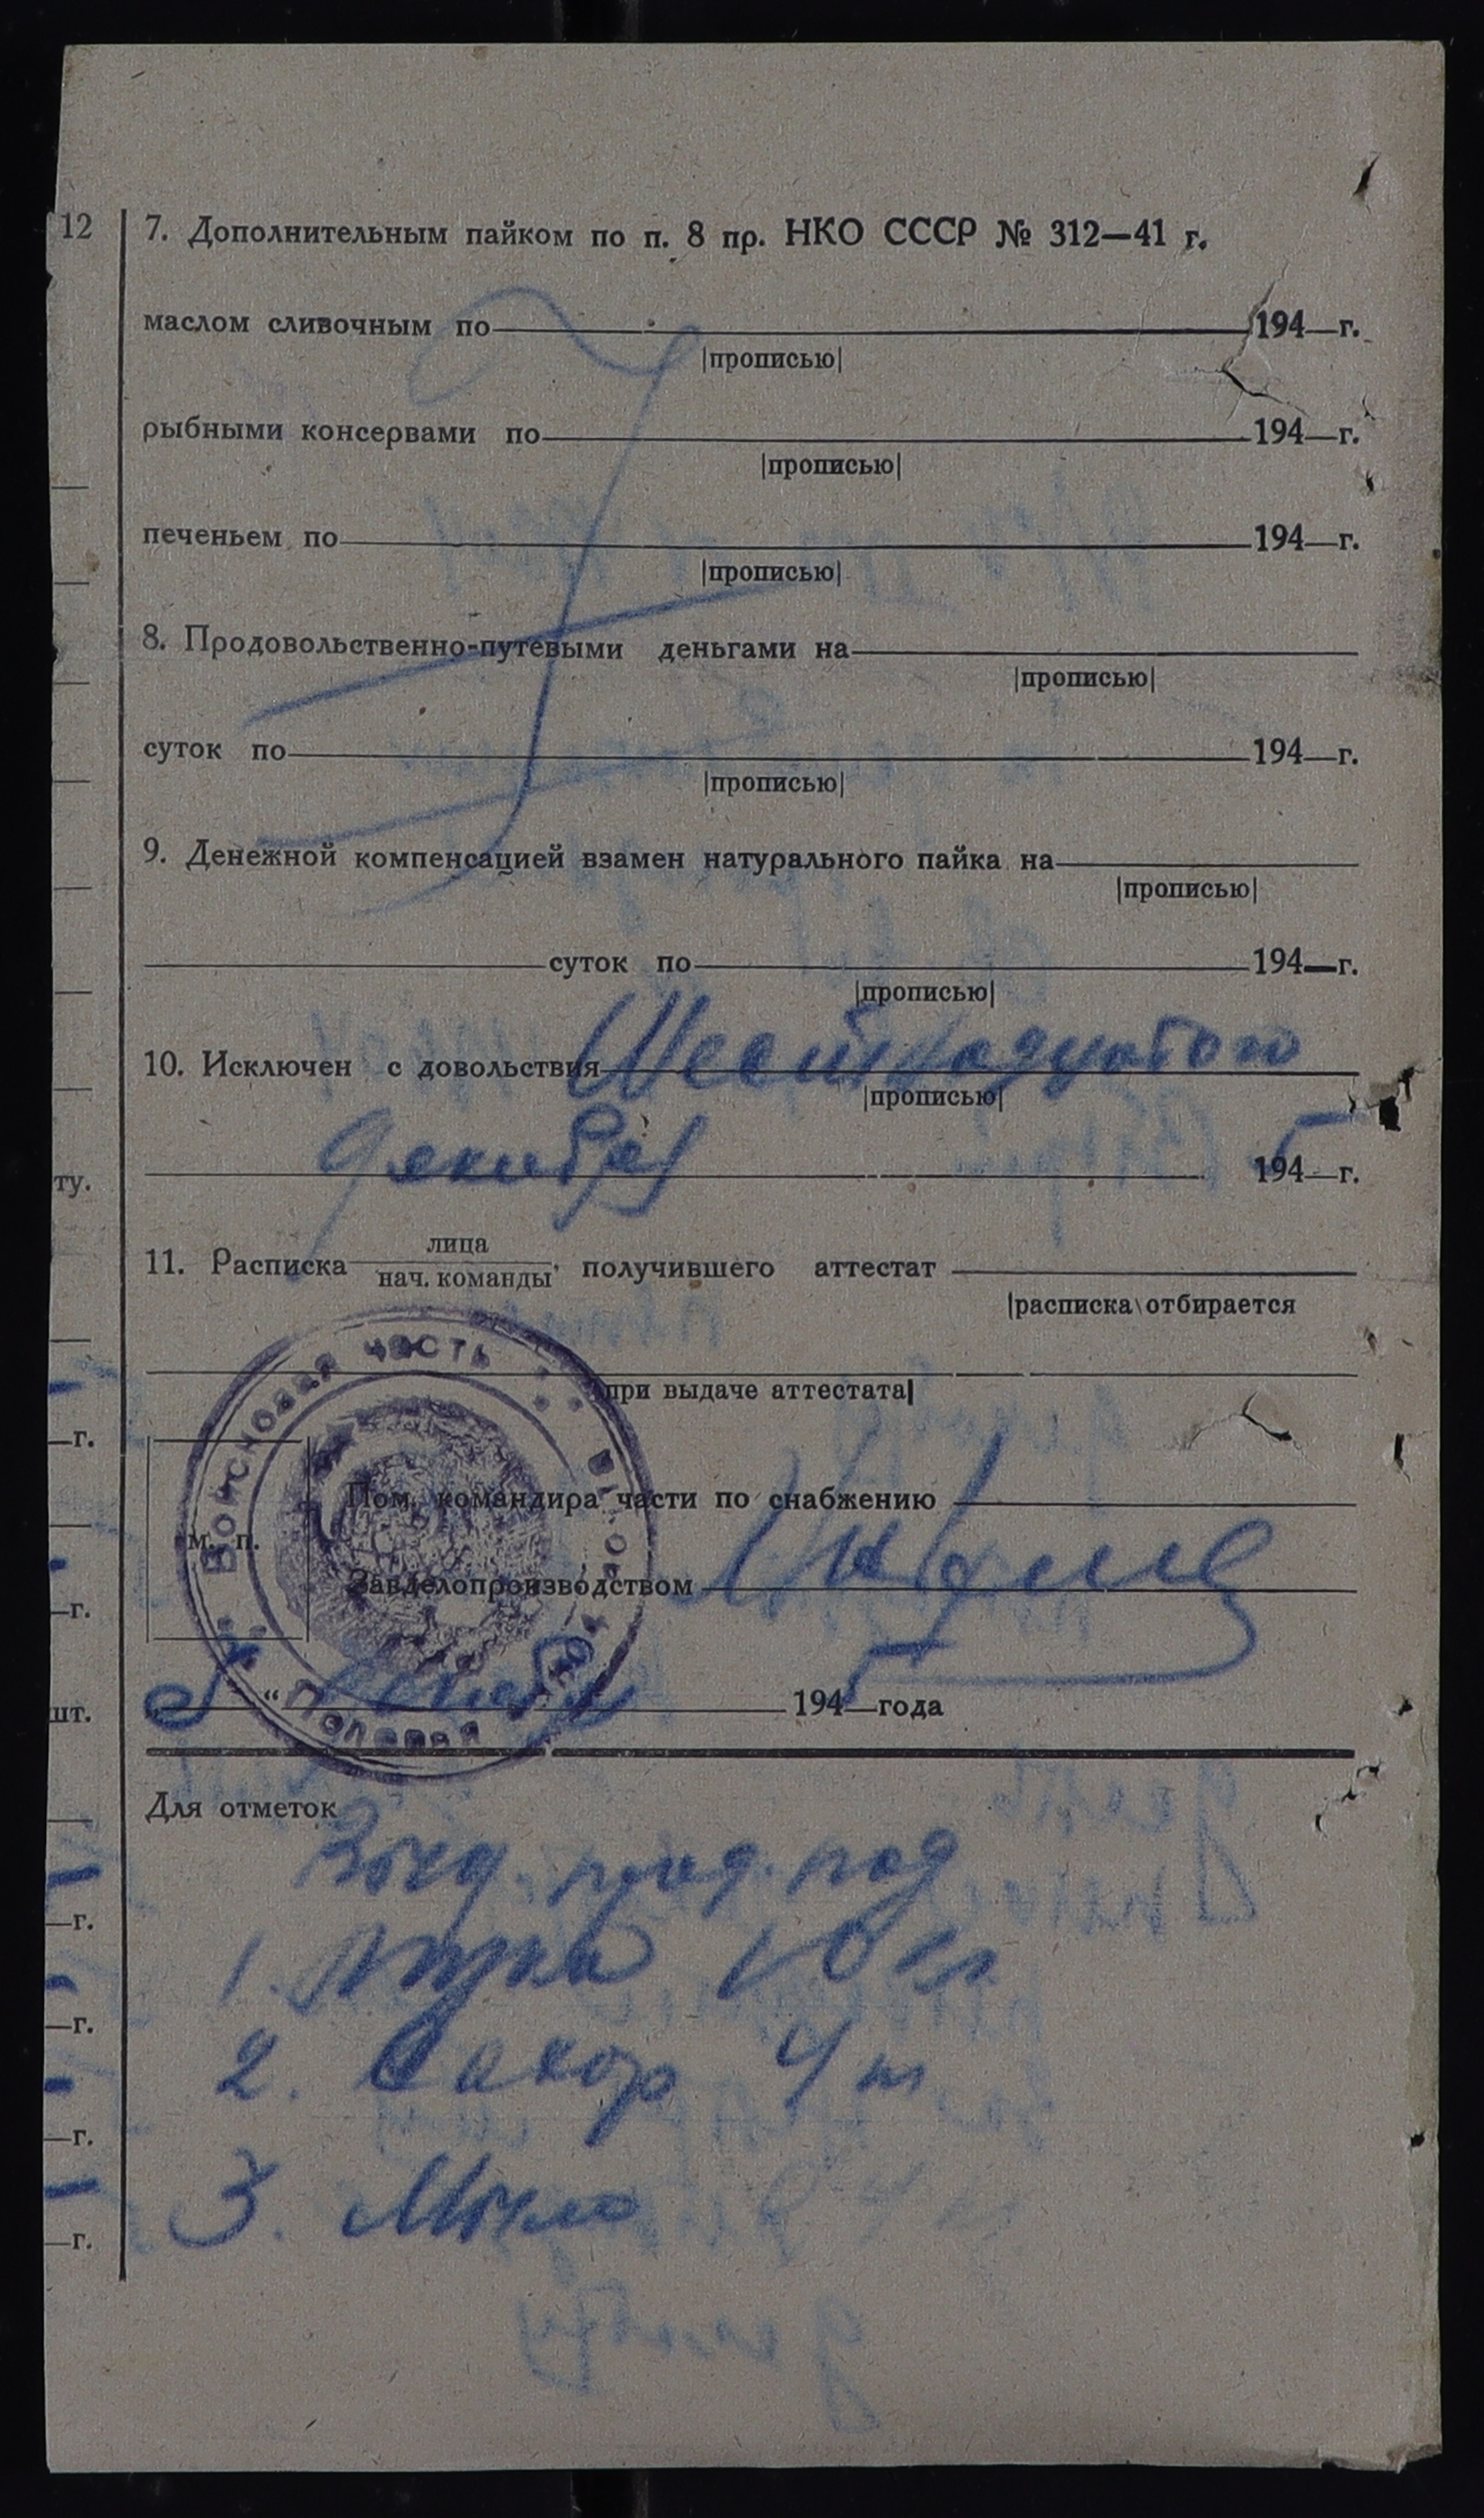 12
7. Дополнительным пайком по п. 8 пр. НКО СССР № 312—41 г.
маслом сливочным по 194—г.
|прописью|
рыбными консервами по 194—г.
|прописью|
печеньем по 194—г.
|прописью|
8. Продовольственно-путевыми деньгами на
|прописью|
суток по 194—г.
|прописью|
9. Денежной компенсацией взамен натурального пайка на
|прописью|
суток по 194—г.
|прописью|
10. Исключен с довольствия Шестнадцатого
|прописью|
декабря 1945 г.
ту.
11. Расписка лица
нач. команды, получившего аттестат
|расписка отбирается
при выдаче аттестата|
Войсковая часть
Полевая
—г.
Пом. командира части по снабжению
м. п.
Завделопроизводством
—г.
декабря 1945 года
шт.
Для отметок
прод. под
—г.
1. Мука 10
—г.
2. Сахар
—г.
3. Мыло
—г.